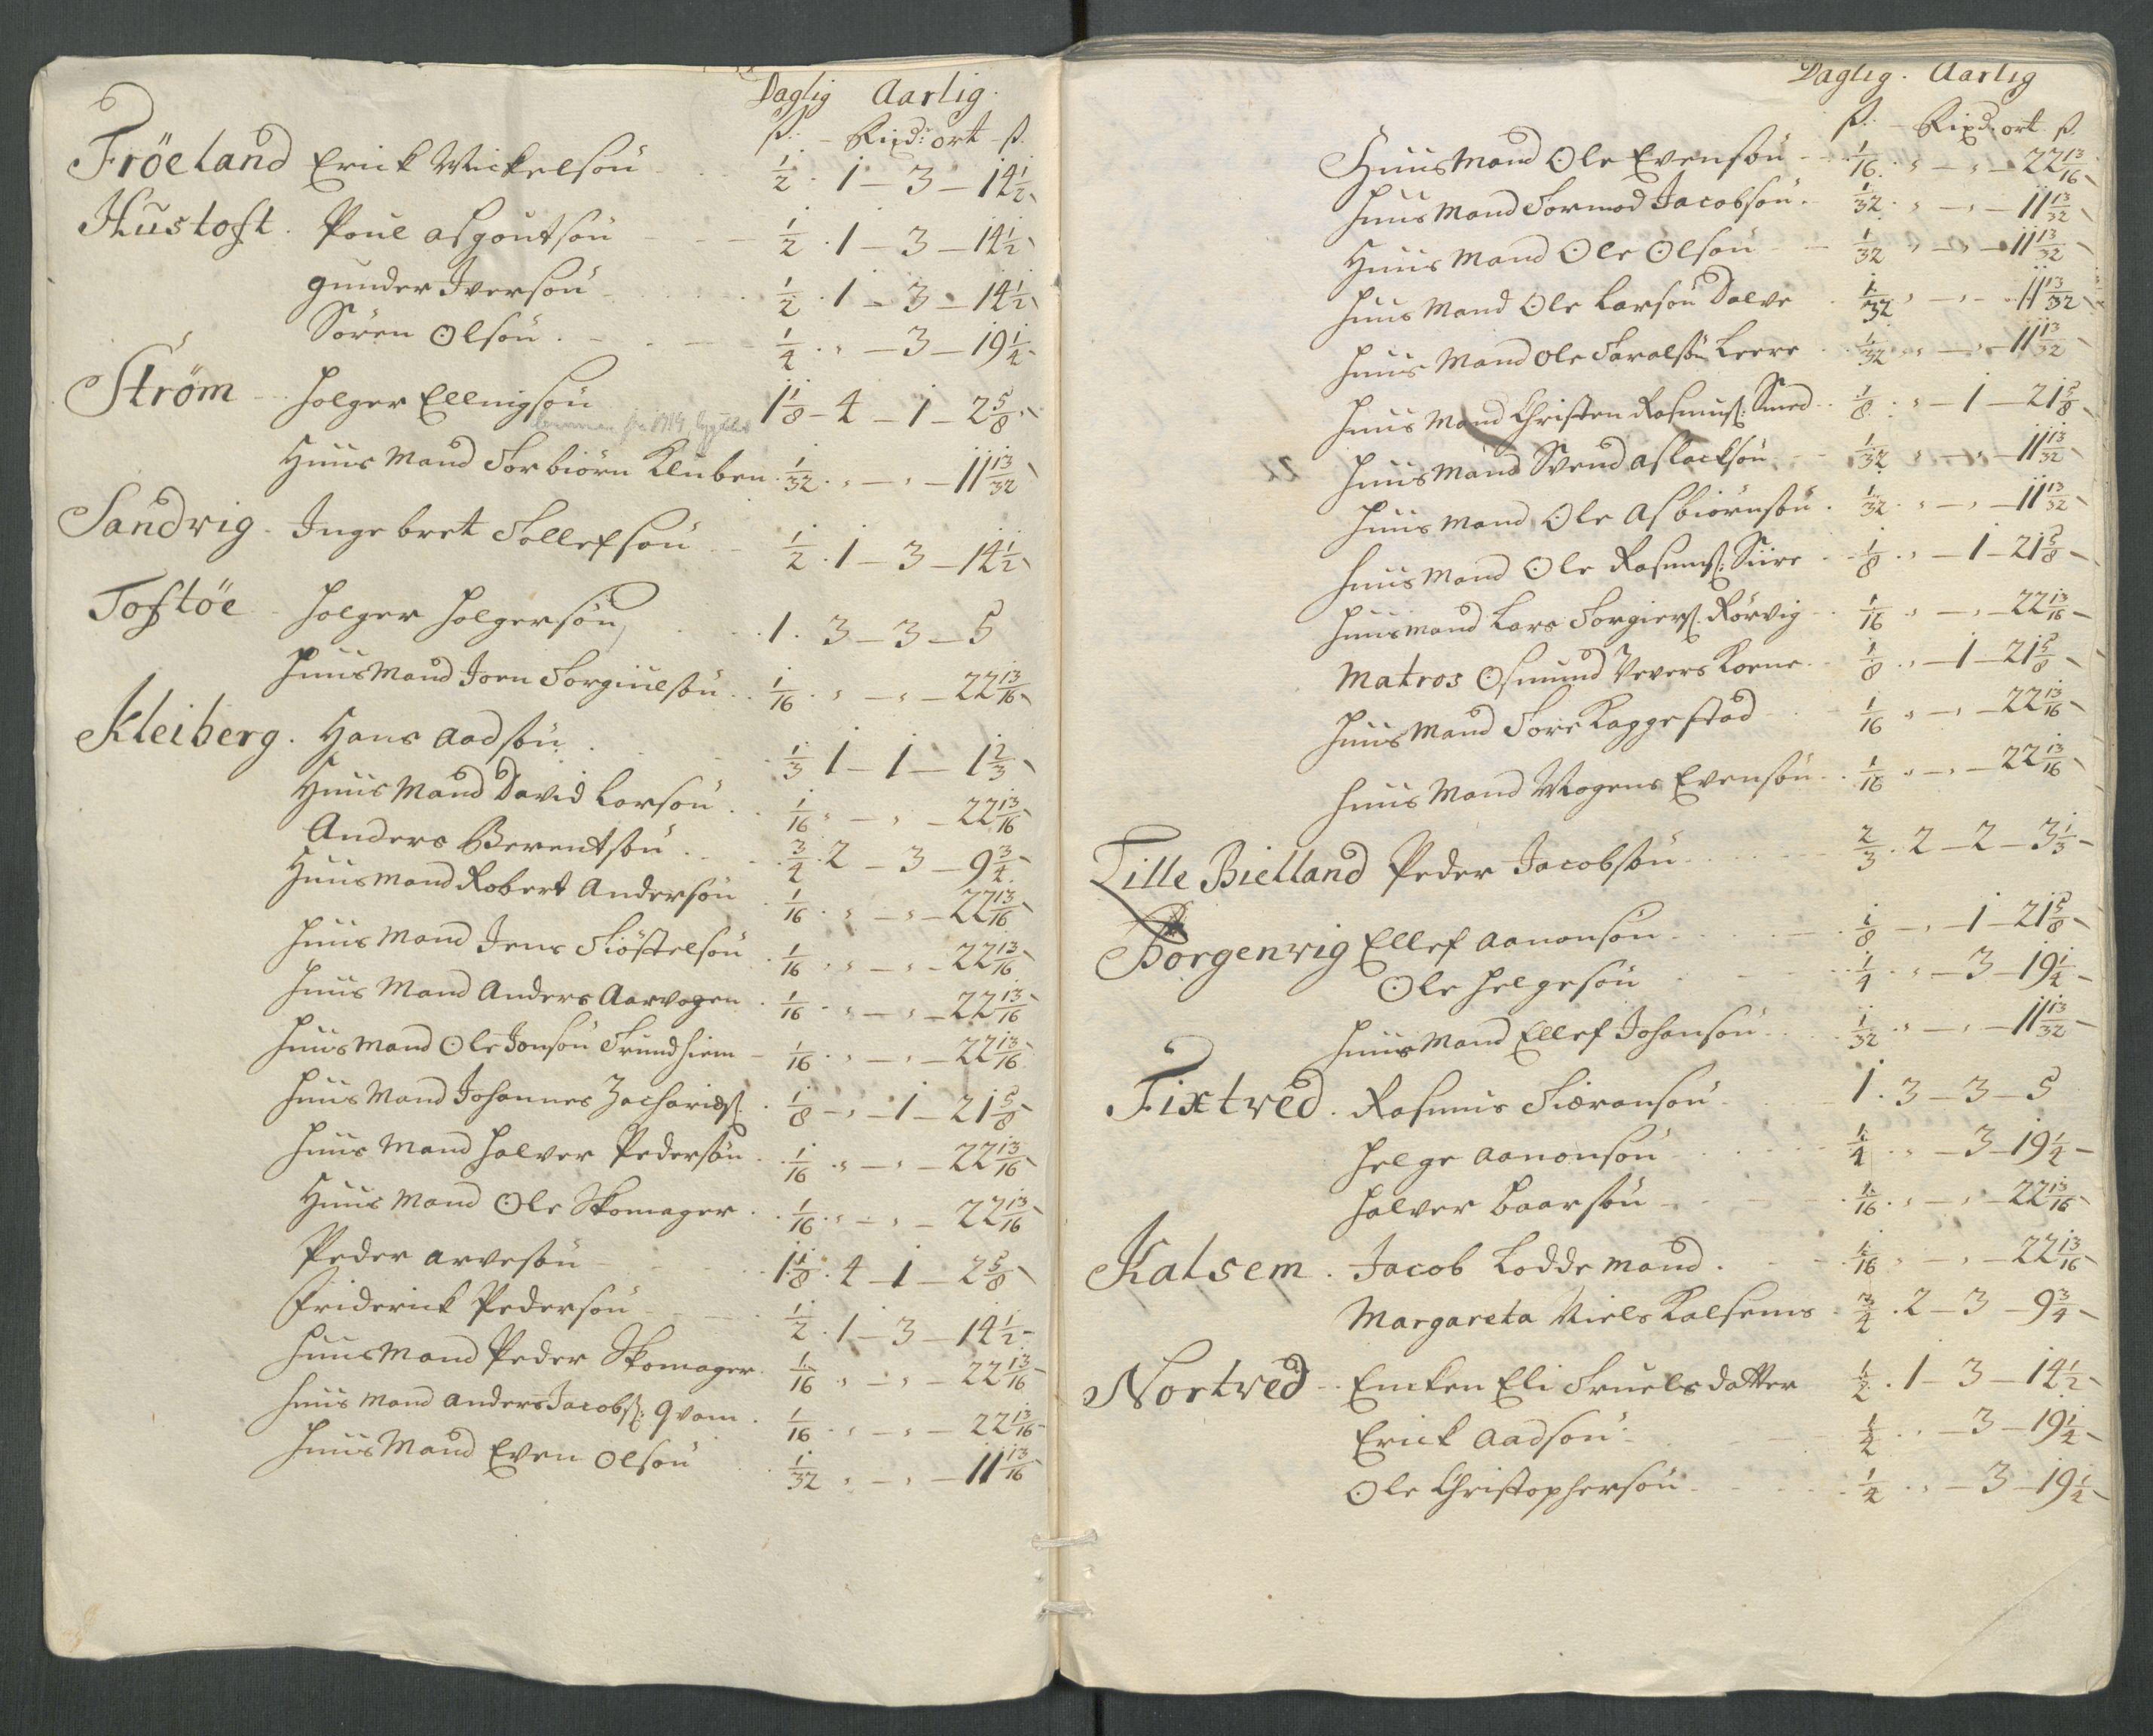 Daglig Aarlig.
ß: – Rixd: ort – ß.
Fröeland Erick Mickelsøn 1/2 . 1 – 3 – 14 1/2
Hustoft. Poul asgoutsøn 1/2 . 1 – 3 – 14 1/2
gunder Iversøn 1/2 . 1 – 3 – 14 1/2
Sören Olsøn . 1/4 . „ – 3 – 19 1/4
Ström Holger Ellingsøn 1 1/8 – 4 – 1 – 2 5/8
Huus Mand Torbiörn Kluben 1/32 . „ – „ – 11 13/32
Sandvig . Ingebret Tollefsøn 1/2 . 1 – 3 – 14 1/2
Toftöe Holger Holgersøn 1 . 3 – 3 – 5
Huus Mand Joen Torgiuelsøn 1/16 . „ – „ – 22 13/16
Kleiberg . Hans Aadsøn . 1/3 1 – 1 – 1 2/3
Huus Mand David Larsøn 1/16 „ – „ – 22 13/16
Anders Berentsøn . 3/4 . 2 – 3 – 9 3/4
Huus Mand Robert Andersøn 1/16 . „ – „ – 22 13/16
Huus Mand Jens Tiöstelsøn 1/16 . „ – „ – 22 13/16
Huus Mand Anders Aarvogen . 1/16 . „ – „ – 22 13/16
Huus Mand Ole Jonsøn Trundhiem – 1/16 . „ – „ – 22 13/16
Huus Mand Johannes Zachariæs: 1/8 – „ – 1 – 21 5/8
Huus Mand Halver Pedersøn . 1/16 . „ – „ – 22 13/16
Huus Mand Ole Skomager . 1/16 . „ – „ – 22 13/16
Peder Arvesøn 1 1/8 . 4 – 1 – 2 5/8
Friderick Pedersøn 1/2 . 1 – 3 – 14 1/2
Huus Mand Peder Skomager . 1/16 . „ – „ – 22 13/16
Huus Mand Anders Jacobs: Qvam . 1/16 . „ – „ – 22 13/16
Huus Mand Even Olsøn 1/32 „ – „ – 11 13/16
Daglig . Aarlig
ß: – Rixd: ort ß.
Huus Mand Ole Evensøn 1/16 . „ – „ – 22 13/16
Huus Mand Tormod Jacobsøn . 1/32 . „ – „ – 11 13/32
Huus Mand Ole Olsøn 1/32 „ – „ – 11 13/32
Huus Mand Ole Larsøn Dalve 1/32 „ – „ – 11 13/32
Huus Mand Ole Taralsøn Leere 1/32 „ – „ – 11 13/32
Huus Mand Christen Rasmus: Smed 1/8 . „ – 1 – 21 5/8
Huus Mand Svend Aslacksøn 1/32 „ – „ – 11 13/32
Huus Mand Ole Asbiörnsøn . 1/32 . „ – „ – 11 13/32
Huus Mand Ole Rasmus: Siire 1/8 . „ – 1 – 21 5/8
Huus Mand Lars Torgiers: Rörvig 1/16 „ – „ – 22 13/16
Matros Osmund Vevers Korne 1/8 . „ – 1 – 21 5/8
Huus Mand Tore Kaggestad 1/16 „ – „ – 22 13/16
Huus Mand Mogens Evensøn 1/16 „ – „ – 22 13/16
Lille Bielland Peder Jacobsøn 2/3 . 2 – 2 – 3 1/3
Borgenvig Ellef Aanonsøn 1/8 – „ – 1 – 21 5/8
Ole Helgesøn 1/4 . „ – 3 – 19 1/4
Huus Mand Ellef Johansøn 1/32 . „ – „ – 11 13/32
Tixtved . Rasmus Siæransøn 1 . 3 – 3 – 5
Helge Aanonsøn 1/4 . „ – 3 – 19 1/4
Halver Baarsøn 1/16 . „ – „ – 22 13/16
Kalsem . Jacob Lodde Mand . 1/16 „ – „ – 22 13/16
Margareta Niels Kalsems 3/4 . 2 – 3 – 9 3/4
Nortved Encken Eli Truelsdatter 1/2 . 1 – 3 – 14 1/2
Erick Aadsøn 1/4 . „ – 3 – 19 1/4
Ole Christophersøn 1/4 . „ – 3 – 19 1/4